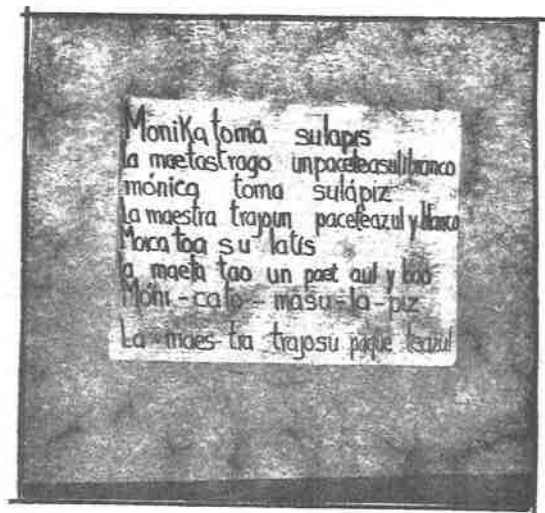 MoniKa toma sulapis
la maetastrago unpaceteasulibranco
mónica toma sulápiz
La maestra trajoun paceteazul y blanco
Moca toa su latis
la maeta tao un paet aul y bao
Móni-cato-masu-la-piz
La-maes-tra trajosu paque teazul